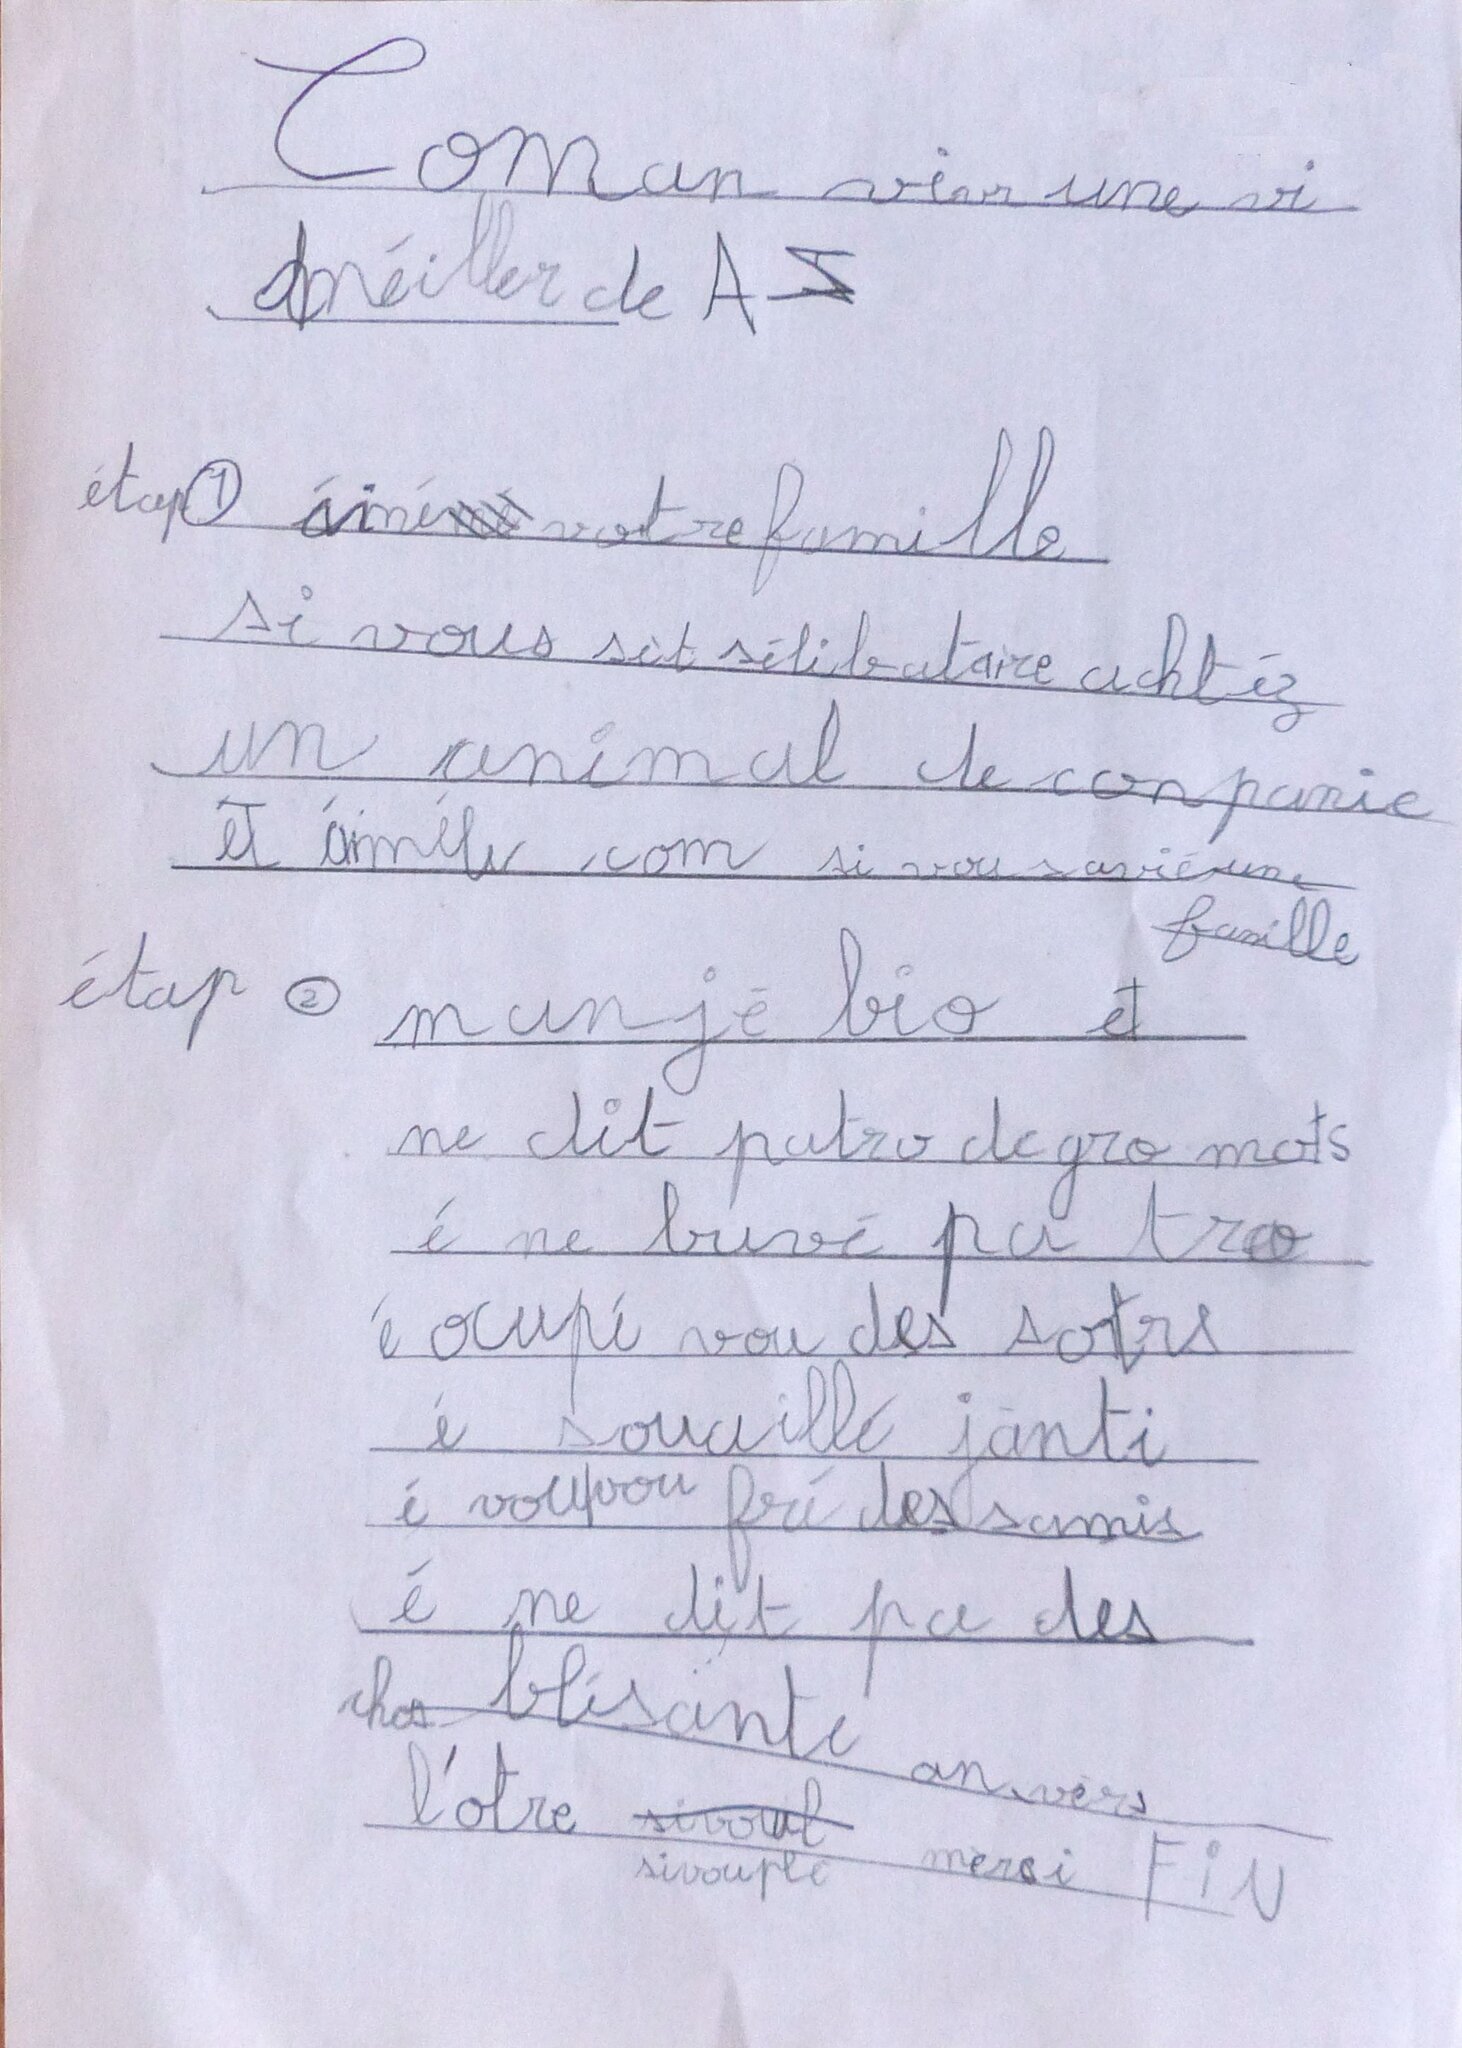 Coman vivr une vi
méiller de A Z
étap 1 éimé votre famille
si vous sèt sélibataire achtéz
un animal de conpanie
èt éimélu com si vou savié une
famille
étap 2 manjé bio et
ne dit patro de gro mots
é ne buvé pa tro
é ocupé vou des sotrs
é souaillé janti
é vou vou fré des samis
é ne dit pa des
chos blésante anvers
l'otre sivouplé merci FiN